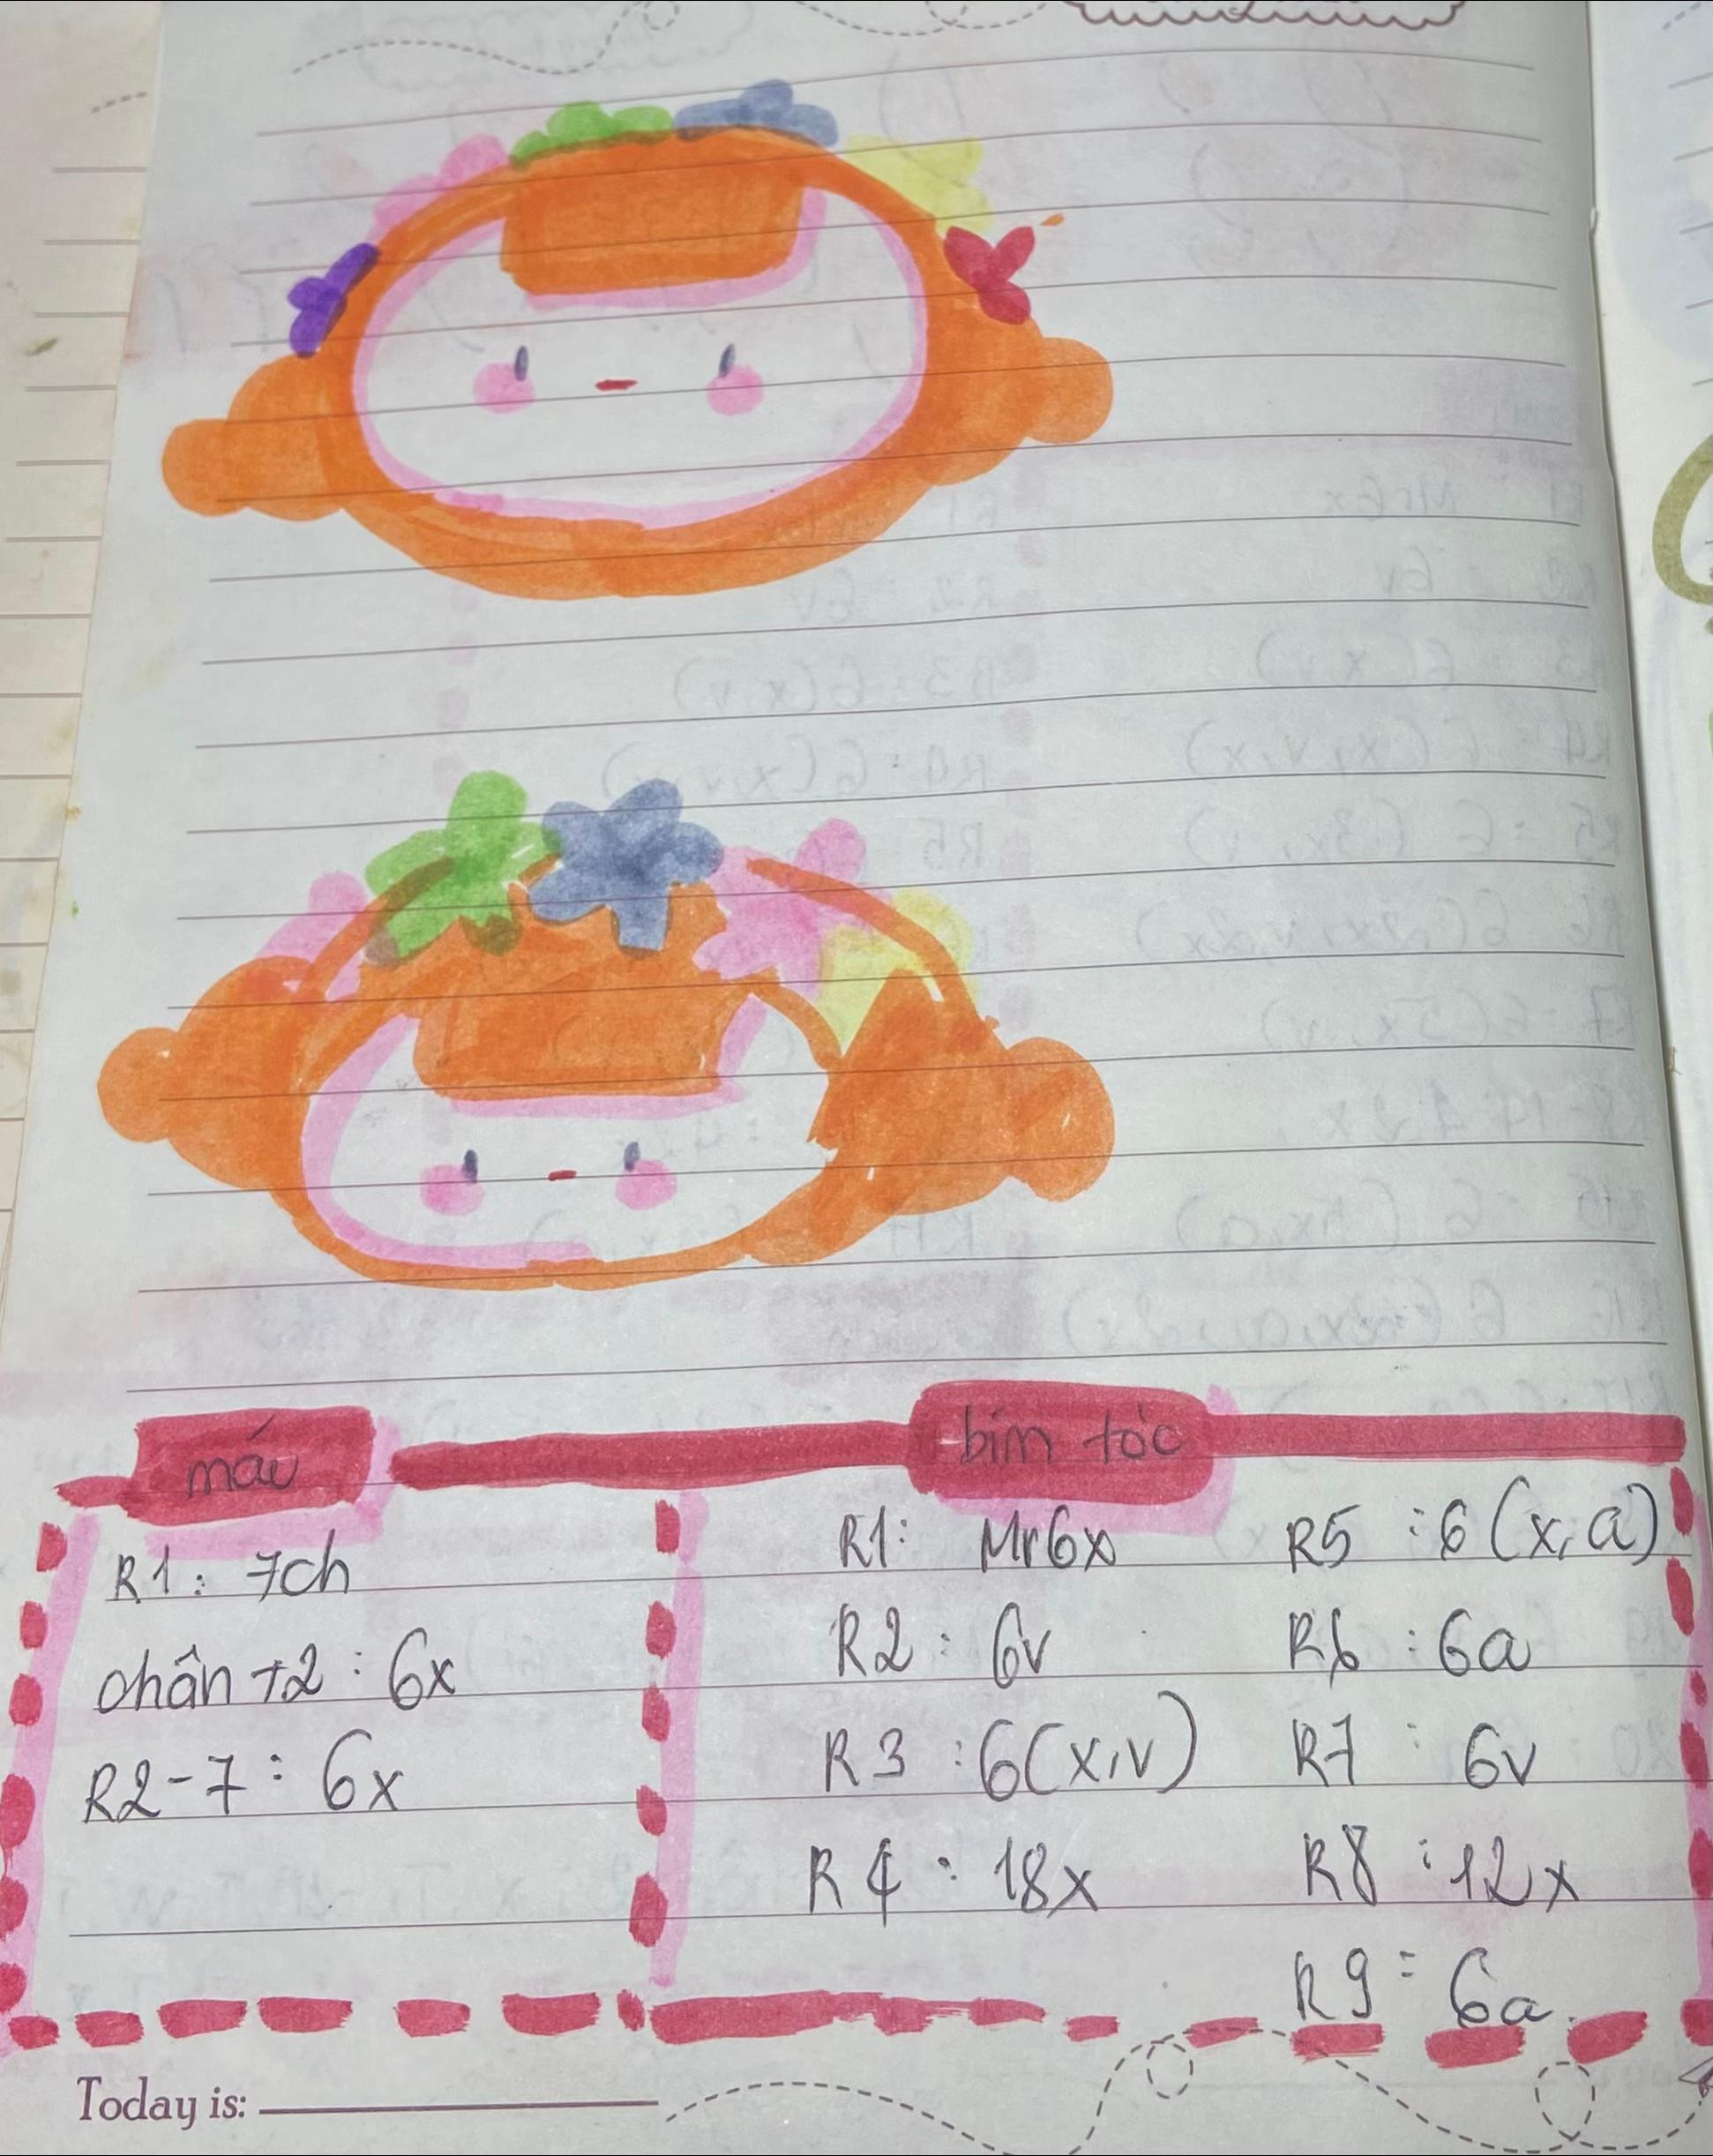 mái
bím tóc
R1: 7ch
chân +2: 6x
R2-7: 6x
R1: Mr6x
R2: 6v
R3: 6(x,v)
R4: 18x
R5: 6(x,a)
R6: 6a
R7: 6v
R8: 12x
R9: 6a.
Today is: